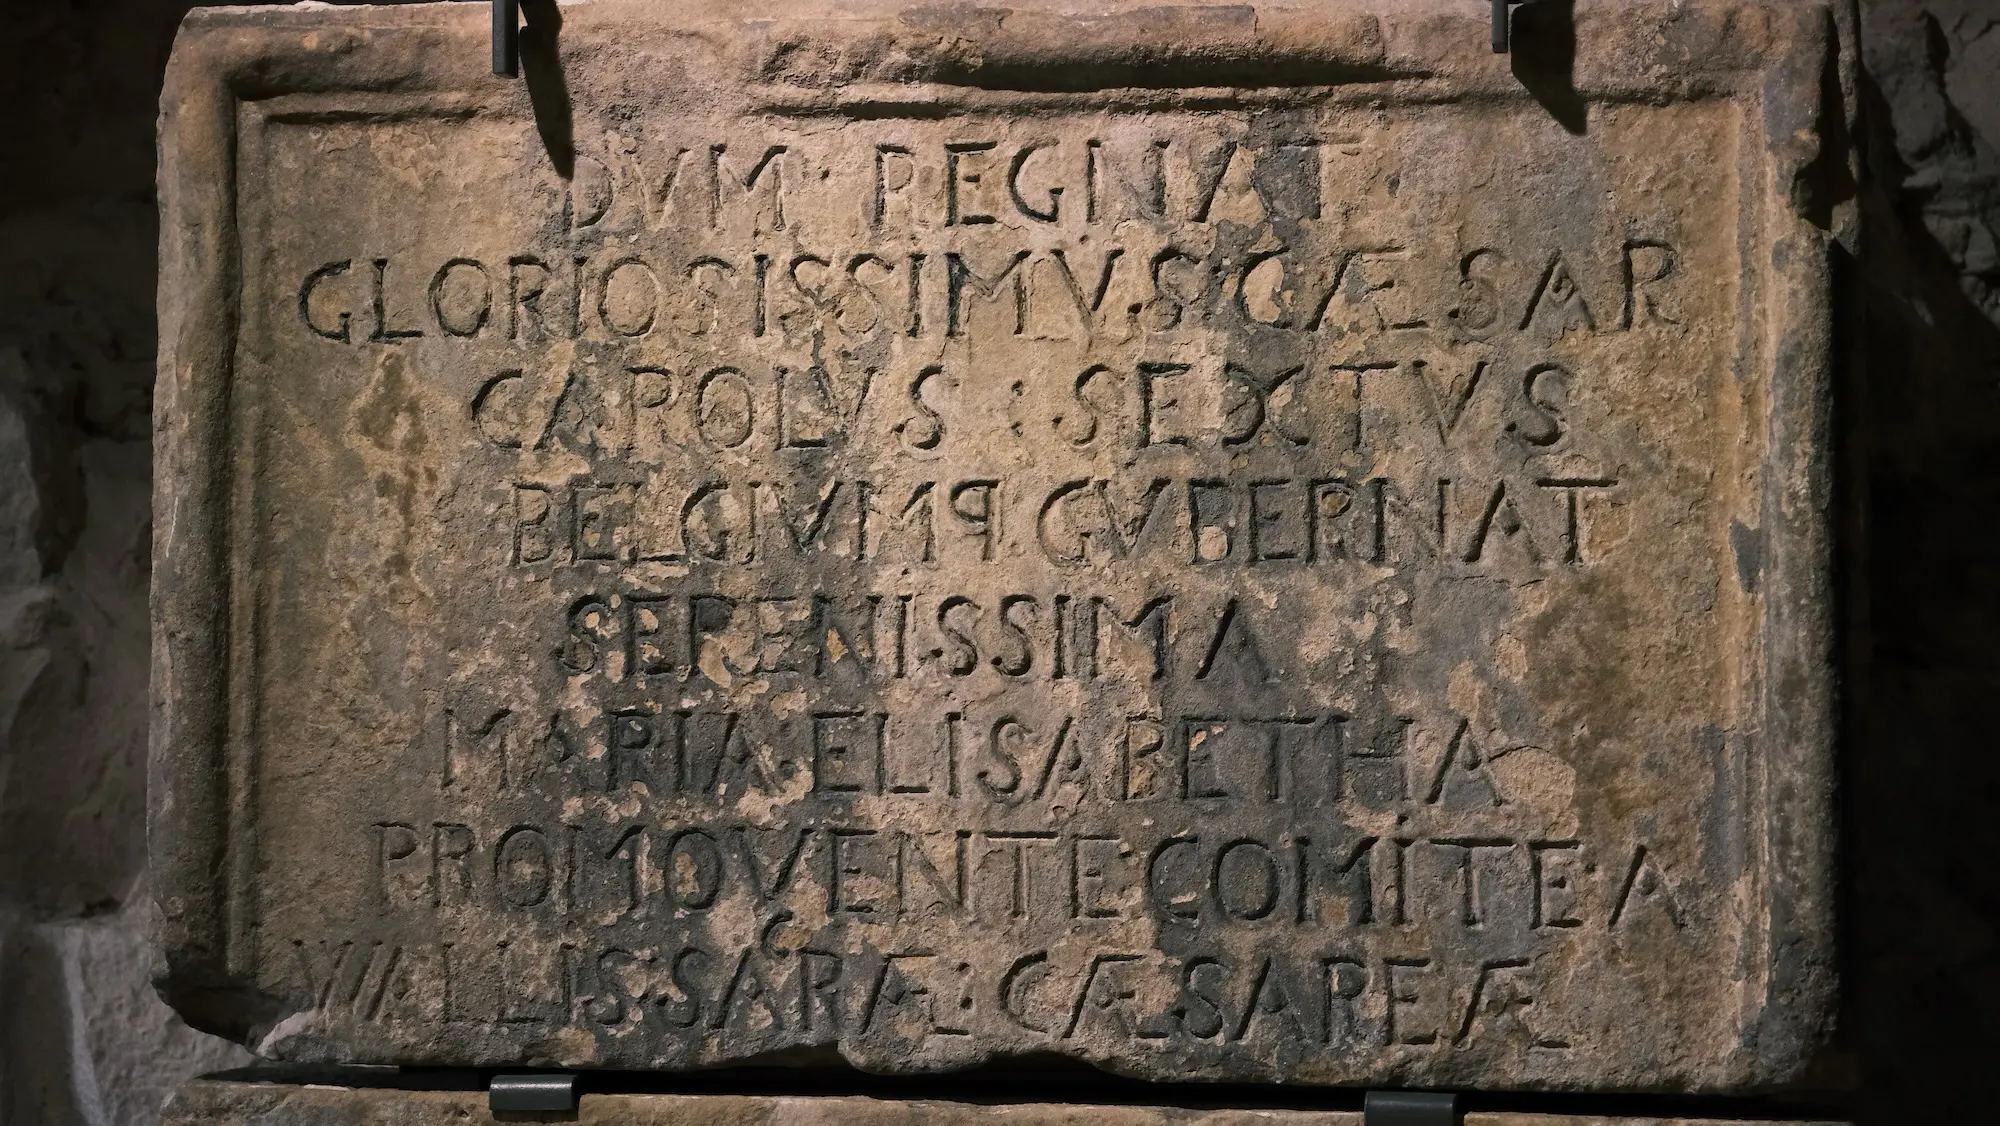 DVM · REGNAT
GLORIOSISSIMVS CÆSAR
CAROLVS : SEXTVS
BELGIVMꟼ GVBERNAT
SERENISSIMA
MARIA ELISABETHA
PROMOVENTE COMITE A
WALLIS SACRÆ : CÆSAREÆ